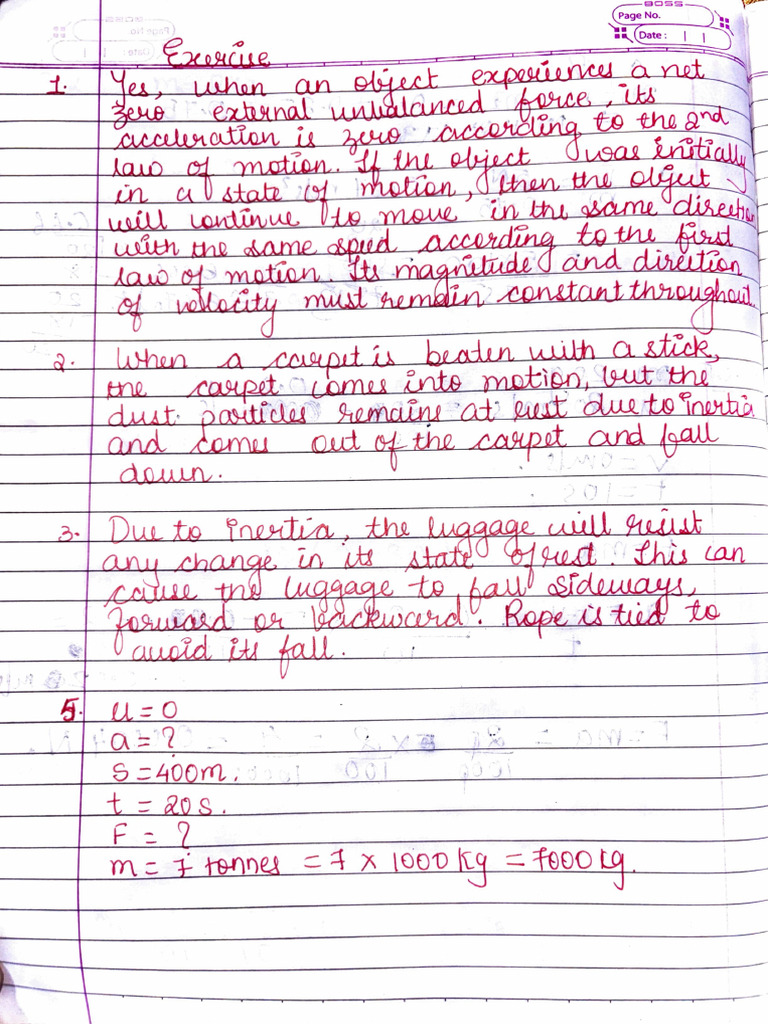 BOSS
Page No.
Date :
Exercise
1. Yes, when an object experiences a net
zero external unbalanced force, its
acceleration is zero according to the 2nd
law of motion. If the object was initially
in a state of motion, then the object
will continue to move in the same direction
with the same speed according to the first
law of motion. Its magnitude and direction
of velocity must remain constant throughout.
2. When a carpet is beaten with a stick,
the carpet comes into motion, but the
dust particles remains at rest due to inertia
and comes out of the carpet and fall
down.
3. Due to inertia, the luggage will resist
any change in its state of rest. This can
cause the luggage to fall sideways,
forward or backward. Rope is tied to
avoid its fall.
5. u = 0
a = ?
s = 400m.
t = 20s.
F = ?
m = 7 tonnes = 7 × 1000 kg = 7000 kg.